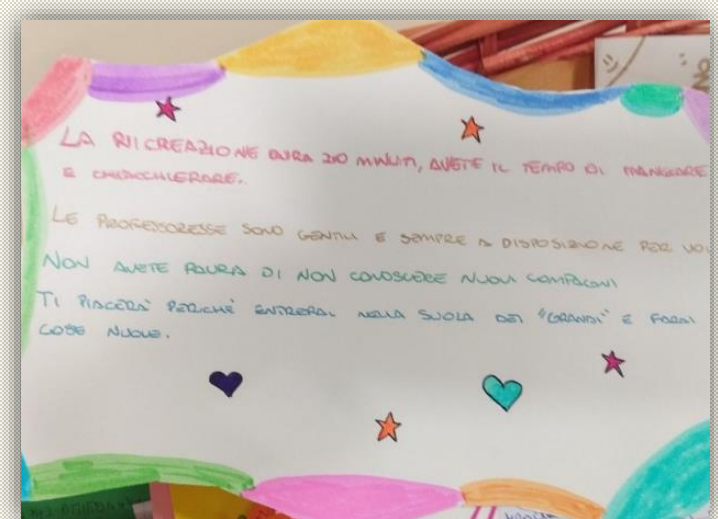 LA RICREAZIONE DURA 20 MINUTI, AVETE IL TEMPO DI MANGIARE
E CHIACCHIERARE.
LE PROFESSORESSE SONO GENTILI E SEMPRE A DISPOSIZIONE PER VOI
NON AVETE PAURA DI NON CONOSCERE NUOVI COMPAGNI
TI PIACERÀ PERCHÈ ENTRERAI NELLA SUOLA DEI "GRANDI" E FARAI
COSE NUOVE.